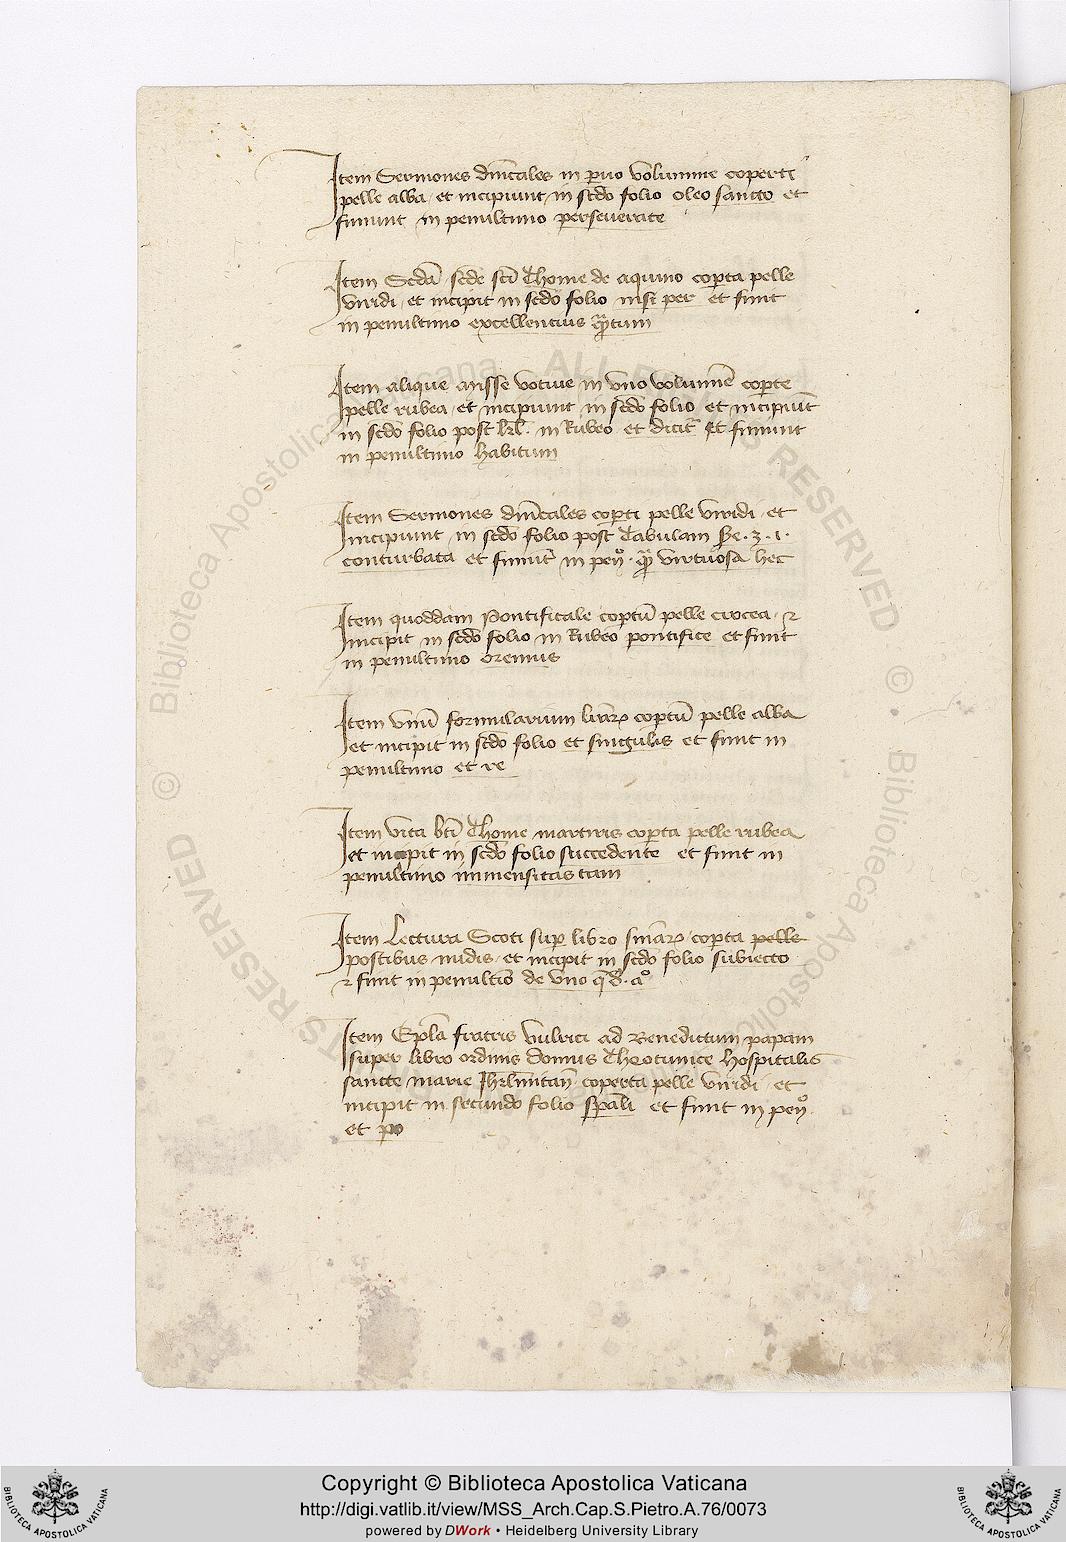 Item Sermones dnicales in paruo volumine coperti
pelle alba et incipiunt in scdo folio oleo sancto et
finiunt in penultimo perseuerate
Item Scda scde sci Thome de aquino coperta pelle
viridi et incipit in scdo folio nisi per et finit
in penultimo excellencius
Item alique misse votiue in vno volumine coperte
pelle rubea et incipiunt in scdo folio et incipiut
in scdo folio post in Rubeo et dicit et finiunt
in penultimo habitum
Item Sermones dnicales coperti pelle viridi et
incipiunt in scdo folio post Tabulam
conturbata et finiut in pen° virtuosa hec
Item quoddam Pontificale coptu pelle crocea et
incipit in scdo folio in Rubeo pontifice et finit
in penultimo oremus
Item vnu formularium coptu pelle alba
et incipit in scdo folio et singulis et finit in
penultimo et re
Item vita bti Thome martiris coperta pelle rubea
et incipit in scdo folio succedente et finit in
penultimo inmensitas tam
Item Lectura Scoti super libro coperta pelle
postibus nudis et incipit in scdo folio subiecto
et finit in penultio de vno
Item Epla fratris vulrici ad Benedictum papam
super libro ordinis domus Theotunice hospitalis
sancte marie coperta pelle viridi et
incipit in secundo folio spali et finit in pen°
et po
Copyright © Biblioteca Apostolica Vaticana
http://digi.vatlib.it/view/MSS_Arch.Cap.S.Pietro.A.76/0073
powered by DWork • Heidelberg University Library